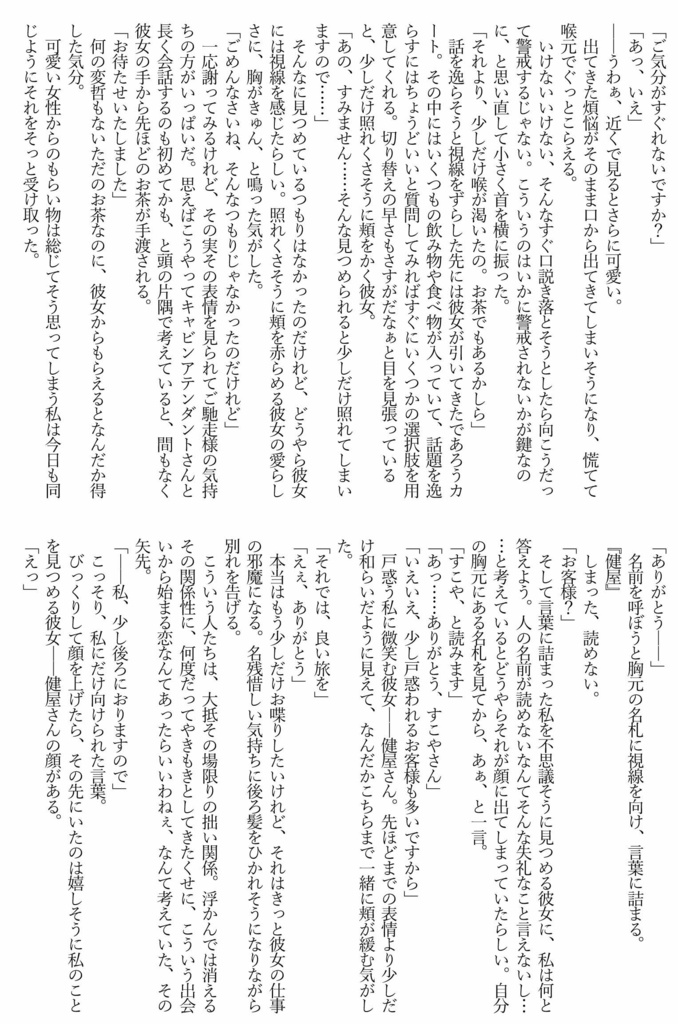 「ご気分がすぐれないですか？」
「あっ、いえ」
――うわぁ、近くで見るとさらに可愛い。
出てきた煩悩がそのまま口から出てきてしまいそうになり、慌てて
喉元でぐっとこらえる。
いけないいけない、そんなすぐ口説き落とそうとしたら向こうだっ
て警戒するじゃない。こういうのはいかに警戒されないかが鍵なの
に、と思い直して小さく首を横に振った。
「それより、少しだけ喉が渇いたの。お茶でもあるかしら」
話を逸らそうと視線をずらした先には彼女が引いてきたであろうカ
ート。その中にはいくつもの飲み物や食べ物が入っていて、話題を逸
らすにはちょうどいいと質問してみればすぐにいくつかの選択肢を用
意してくれる。切り替えの早さもさすがだなぁと目を見張っている
と、少しだけ照れくさそうに頬をかく彼女。
「あの、すみません……そんな見つめられると少しだけ照れてしまい
ますので……」
そんなに見つめているつもりはなかったのだけれど、どうやら彼女
には視線を感じたらしい。照れくさそうに頬を赤らめる彼女の愛らし
さに、胸がきゅん、と鳴った気がした。
「ごめんなさいね、そんなつもりじゃなかったのだけれど」
一応謝ってみるけれど、その実その表情を見られてご馳走様の気持
ちの方がいっぱいだ。思えばこうやってキャビンアテンダントさんと
長く会話するのも初めてかも、と頭の片隅で考えていると、間もなく
彼女の手から先ほどのお茶が手渡される。
「お待たせいたしました」
何の変哲もないただのお茶なのに、彼女からもらえるとなんだか得
した気分。
可愛い女性からのもらい物は総じてそう思ってしまう私は今日も同
じようにそれをそっと受け取った。
「ありがとう――」
名前を呼ぼうと胸元の名札に視線を向け、言葉に詰まる。
『健屋』
しまった、読めない。
「お客様？」
そして言葉に詰まった私を不思議そうに見つめる彼女に、私は何と
答えよう。人の名前が読めないなんてそんな失礼なこと言えないし…
…と考えているとどうやらそれが顔に出てしまっていたらしい。自分
の胸元にある名札を見てから、あぁ、と一言。
「すこや、と読みます」
「あっ……ありがとう、すこやさん」
「いえいえ、少し戸惑われるお客様も多いですから」
戸惑う私に微笑む彼女――健屋さん。先ほどまでの表情より少しだ
け和らいだように見えて、なんだかこちらまで一緒に頬が緩む気がし
た。
「それでは、良い旅を」
「えぇ、ありがとう」
本当はもう少しだけお喋りしたいけれど、それはきっと彼女の仕事
の邪魔になる。名残惜しい気持ちに後ろ髪をひかれそうになりながら
別れを告げる。
こういう人たちは、大抵その場限りの拙い関係。浮かんでは消える
その関係性に、何度だってやきもきとしてきたくせに、こういう出会
いから始まる恋なんてあったらいいわねぇ、なんて考えていた、その
矢先。
「――私、少し後ろにおりますので」
こっそり、私にだけ向けられた言葉。
びっくりして顔を上げたら、その先にいたのは嬉しそうに私のこと
を見つめる彼女――健屋さんの顔がある。
「えっ」